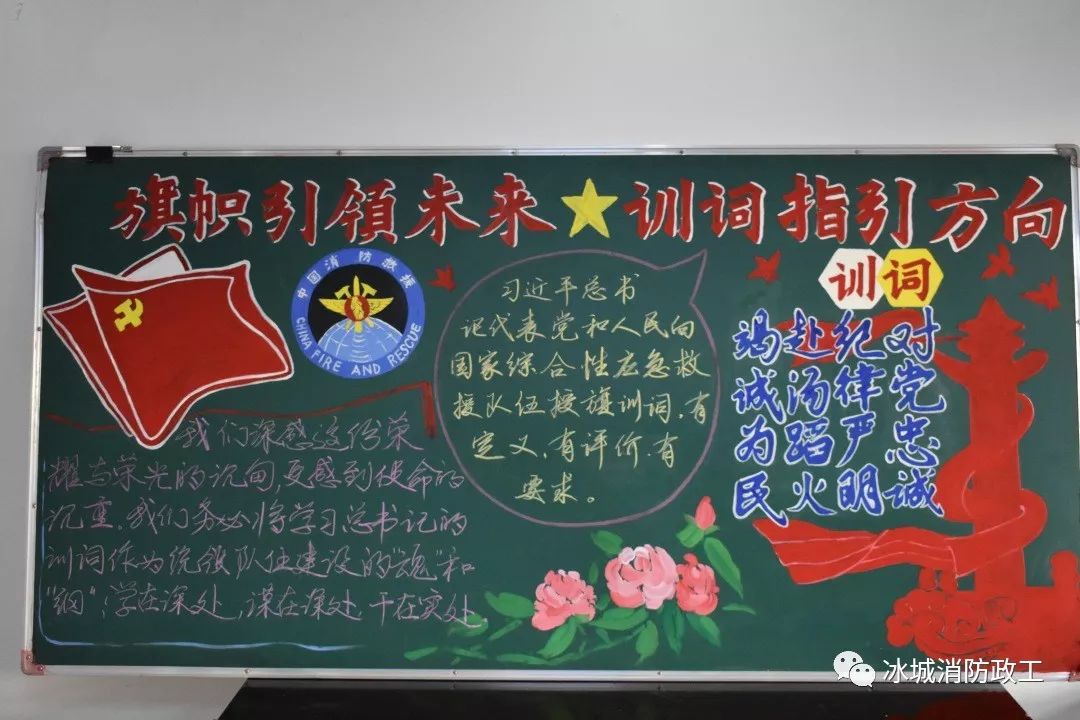 旗帜引領未来★训词指引方向
中国消防救援
CHINA FIRE AND RESCUE
我们深感这份荣
耀与荣光的沉甸,更感到使命的
沉重,我们务必将学习总书记的
训词作为统领队伍建设的"魂"和
"纲",学在深处,谋在深处,干在实处.
习近平总书
记代表党和人民向
国家综合性应急救
援队伍授旗训词,有
定义,有评价,有
要求。
训词
对党忠诚
纪律严明
赴汤蹈火
竭诚为民
冰城消防政工